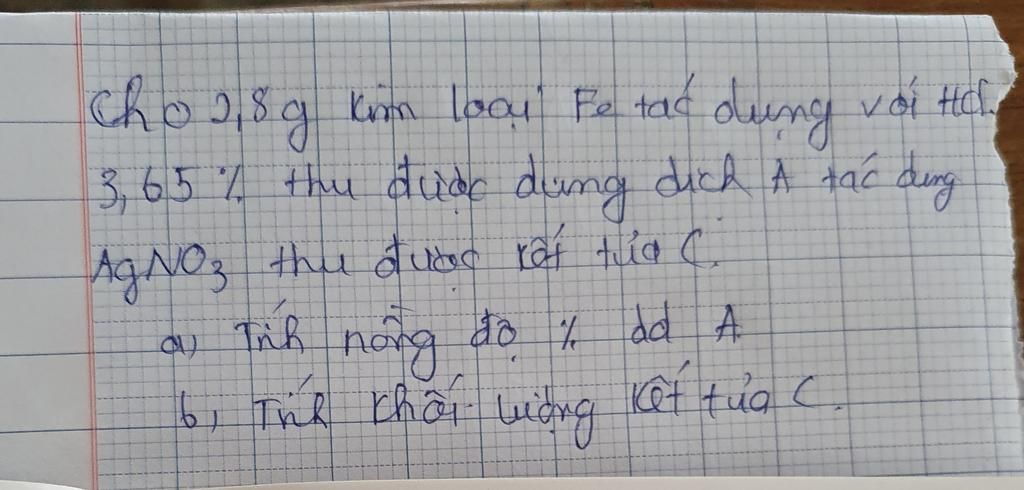 Cho 2,8g kim loại Fe tác dụng với HCl.
3,65% thu được dung dịch A tác dụng
AgNO3 thu được kết tủa C.
a, Tính nồng độ % dd A
b, Tính khối lượng kết tủa C.